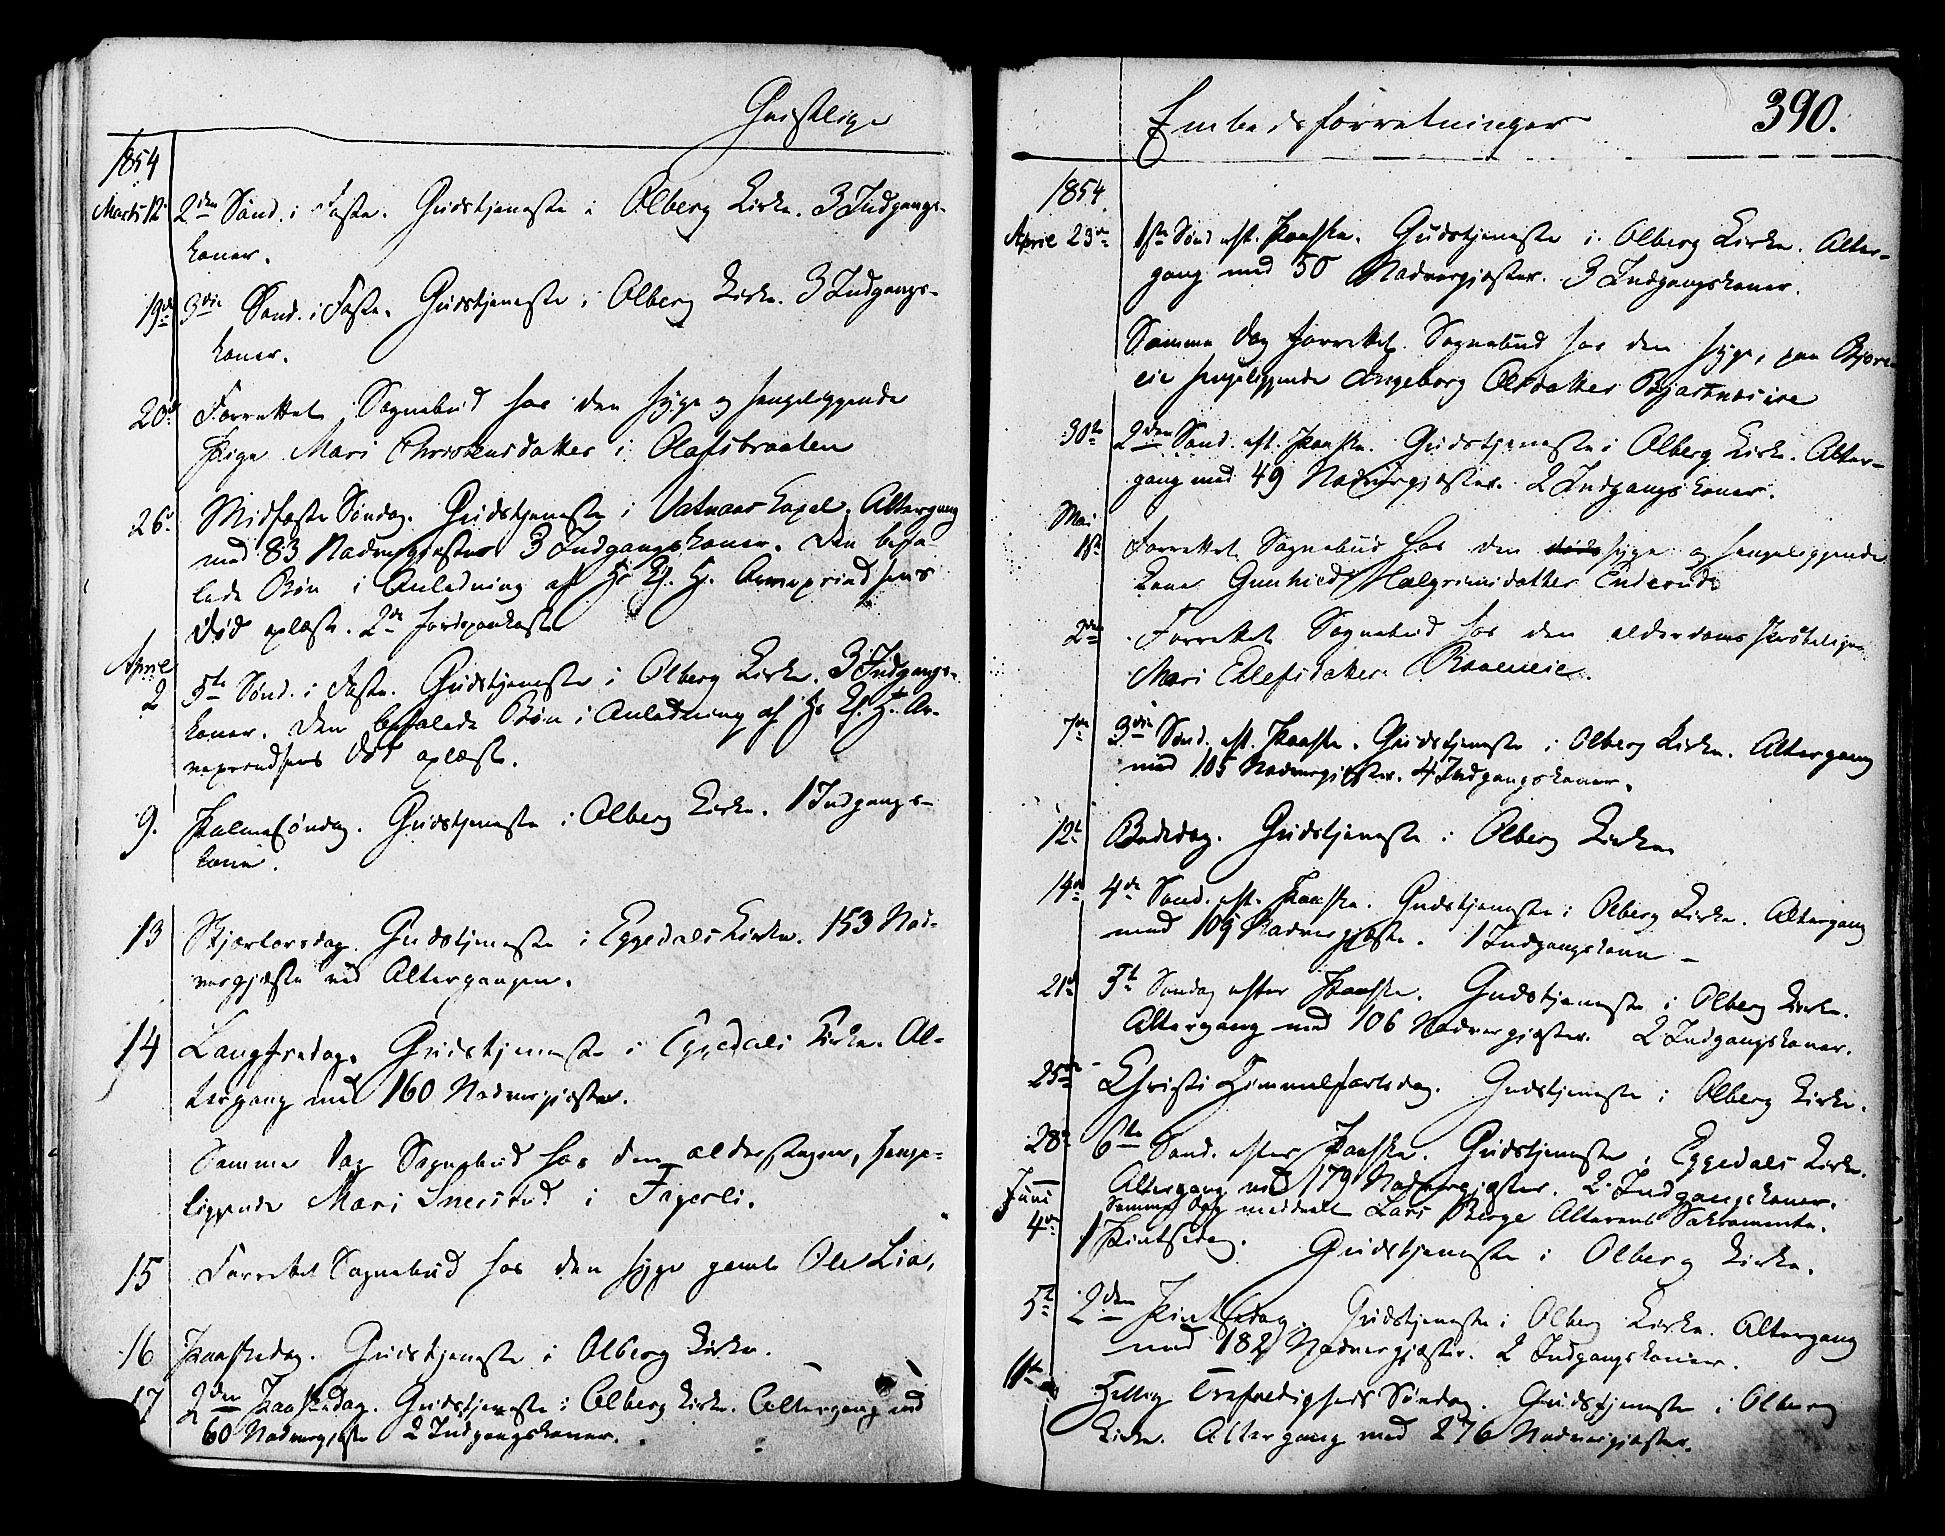 Geistlige
1854
Marts 12. 2den Sønd. i Faste. Gudstjeneste i Olberg Kirke. 3 Indgangs-
koner.
19de 3die Sønd. i Faste. Gudstjeneste i Olberg Kirke. 3 Indgangs-
koner.
20de Forrettet Sognebud hos den syge og sengeliggende
Pige Mari Christensdatter i Olafsbraaten
26de Midfaste Søndag. Gudstjeneste i Vatnaas Kapel. Altergang
med 83 Nadvergjæster 3 Indgangskoner. Den befa-
lede Bøn i Anledning af Hs Kl. H. Arveprindsens
Død oplæst. 2de
April
2 5te Sønd. i Faste. Gudstjeneste i Olberg Kirke. 3 Indgangs-
koner. Den befalede Bøn i Anledning af Hs Kl. H. Ar-
veprindsens Død oplæst.
9. Palmesøndag. Gudstjeneste i Olberg Kirke. 1 Indgangs-
kone.
13 Skjærtorsdag. Gudstjeneste i Eggedals Kirke. 153 Nad-
vergjæste ved Altergangen.
14 Langfredag. Gudstjeneste i Eggedals Kirke. Al-
tergang med 160 Nadvergjæster.
Samme Dag Sognebud hos den alderstegne, senge-
liggende Mari Sneistud i Fagerli.
15 Forrettet Sognebud hos den syge gamle Ole Lia.
16 Paaskedag. Gudstjeneste i Olberg Kirke.
17 2den Paaskedag. Gudstjeneste i Olberg Kirke. Altergang med
60 Nadvergjæster 2 Indgangskoner.
Embedsforretninger 390.
1854
April 23de 1ste Sønd. eft. Paaske. Gudstjeneste i Olberg Kirke. Alter-
gang med 50 Nadvergjæster. 3 Indgangskoner.
Samme Dag forrettet Sognebud hos den syge, paa
eie sengeliggende Ingeborg Olsdatter
30te 2den Sønd. eft. Paaske. Gudstjeneste i Olberg Kirke. Alter-
gang med 49 Nadvergjæster. 2 Indgangskoner.
Mai
1ste Forrettet Sognebud hos den syge og sengeliggende
Kone Gunhild Halgrimsdatter Enderud
2den Forrettet Sognebud hos den alderdomsskrøbelige
Mari Ellefsdatter
7de 3die Sønd. eft. Paaske. Gudstjeneste i Olberg Kirke. Altergang
med 105 Nadvergjæster. 4 Indgangskoner.
12te Bededag. Gudstjeneste i Olberg Kirke
14de 4de Sønd. eft. Paaske. Gudstjeneste i Olberg Kirke. Altergang
med 109 Nadvergjæste. 1 Indgangskone -
21de 5te Søndag efter Paaske. Gudstjeneste i Olberg Kirke.
Altergang med 106 Nadvergjæster. 2 Indgangskoner.
25de Christi Himmelfartsdag. Gudstjeneste i Olberg Kirke.
28de 6te Sønd. efter Paaske. Gudstjeneste i Eggedals Kirke.
Altergang med 179 Nadvergjæster. 2 Indgangskoner.
Samme Dag meddeelt Lars Berge Alterens Sakramente.
Juni
4de 1 Pintsedag. Gudstjeneste i Olberg Kirke.
5te 2den Pintsedag. Gudstjeneste i Olberg Kirke. Altergang
med 182 Nadvergjæster. 2 Indgangskoner.
11te Hellig Trefoldigheds Søndag. Gudstjeneste i Olberg
Kirke. Altergang med 276 Nadvergjæster.